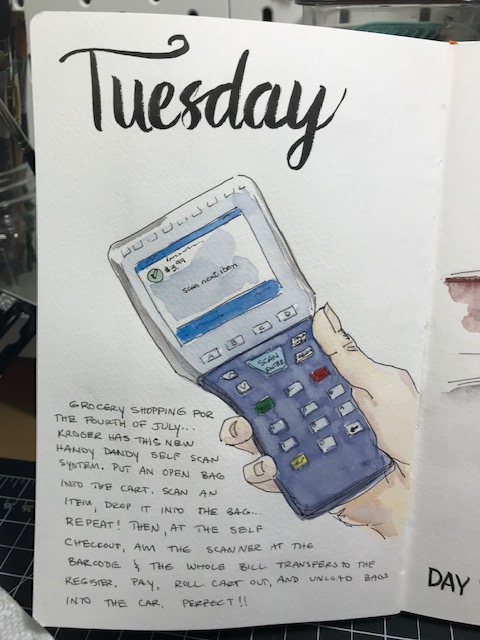 Tuesday
$3.99
scan next item
A B C D
SCAN
ENTER
GROCERY SHOPPING FOR
THE FOURTH OF JULY...
KROGER HAS THIS NEW
HANDY DANDY SELF SCAN
SYSTEM. PUT AN OPEN BAG
INTO THE CART. SCAN AN
ITEM, DROP IT INTO THE BAG...
REPEAT! THEN, AT THE SELF
CHECKOUT, AIM THE SCANNER AT THE
BARCODE & THE WHOLE BILL TRANSFERS TO THE
REGISTER. PAY, ROLL CART OUT, AND UNLOAD BAGS
INTO THE CAR. PERFECT!!
DAY